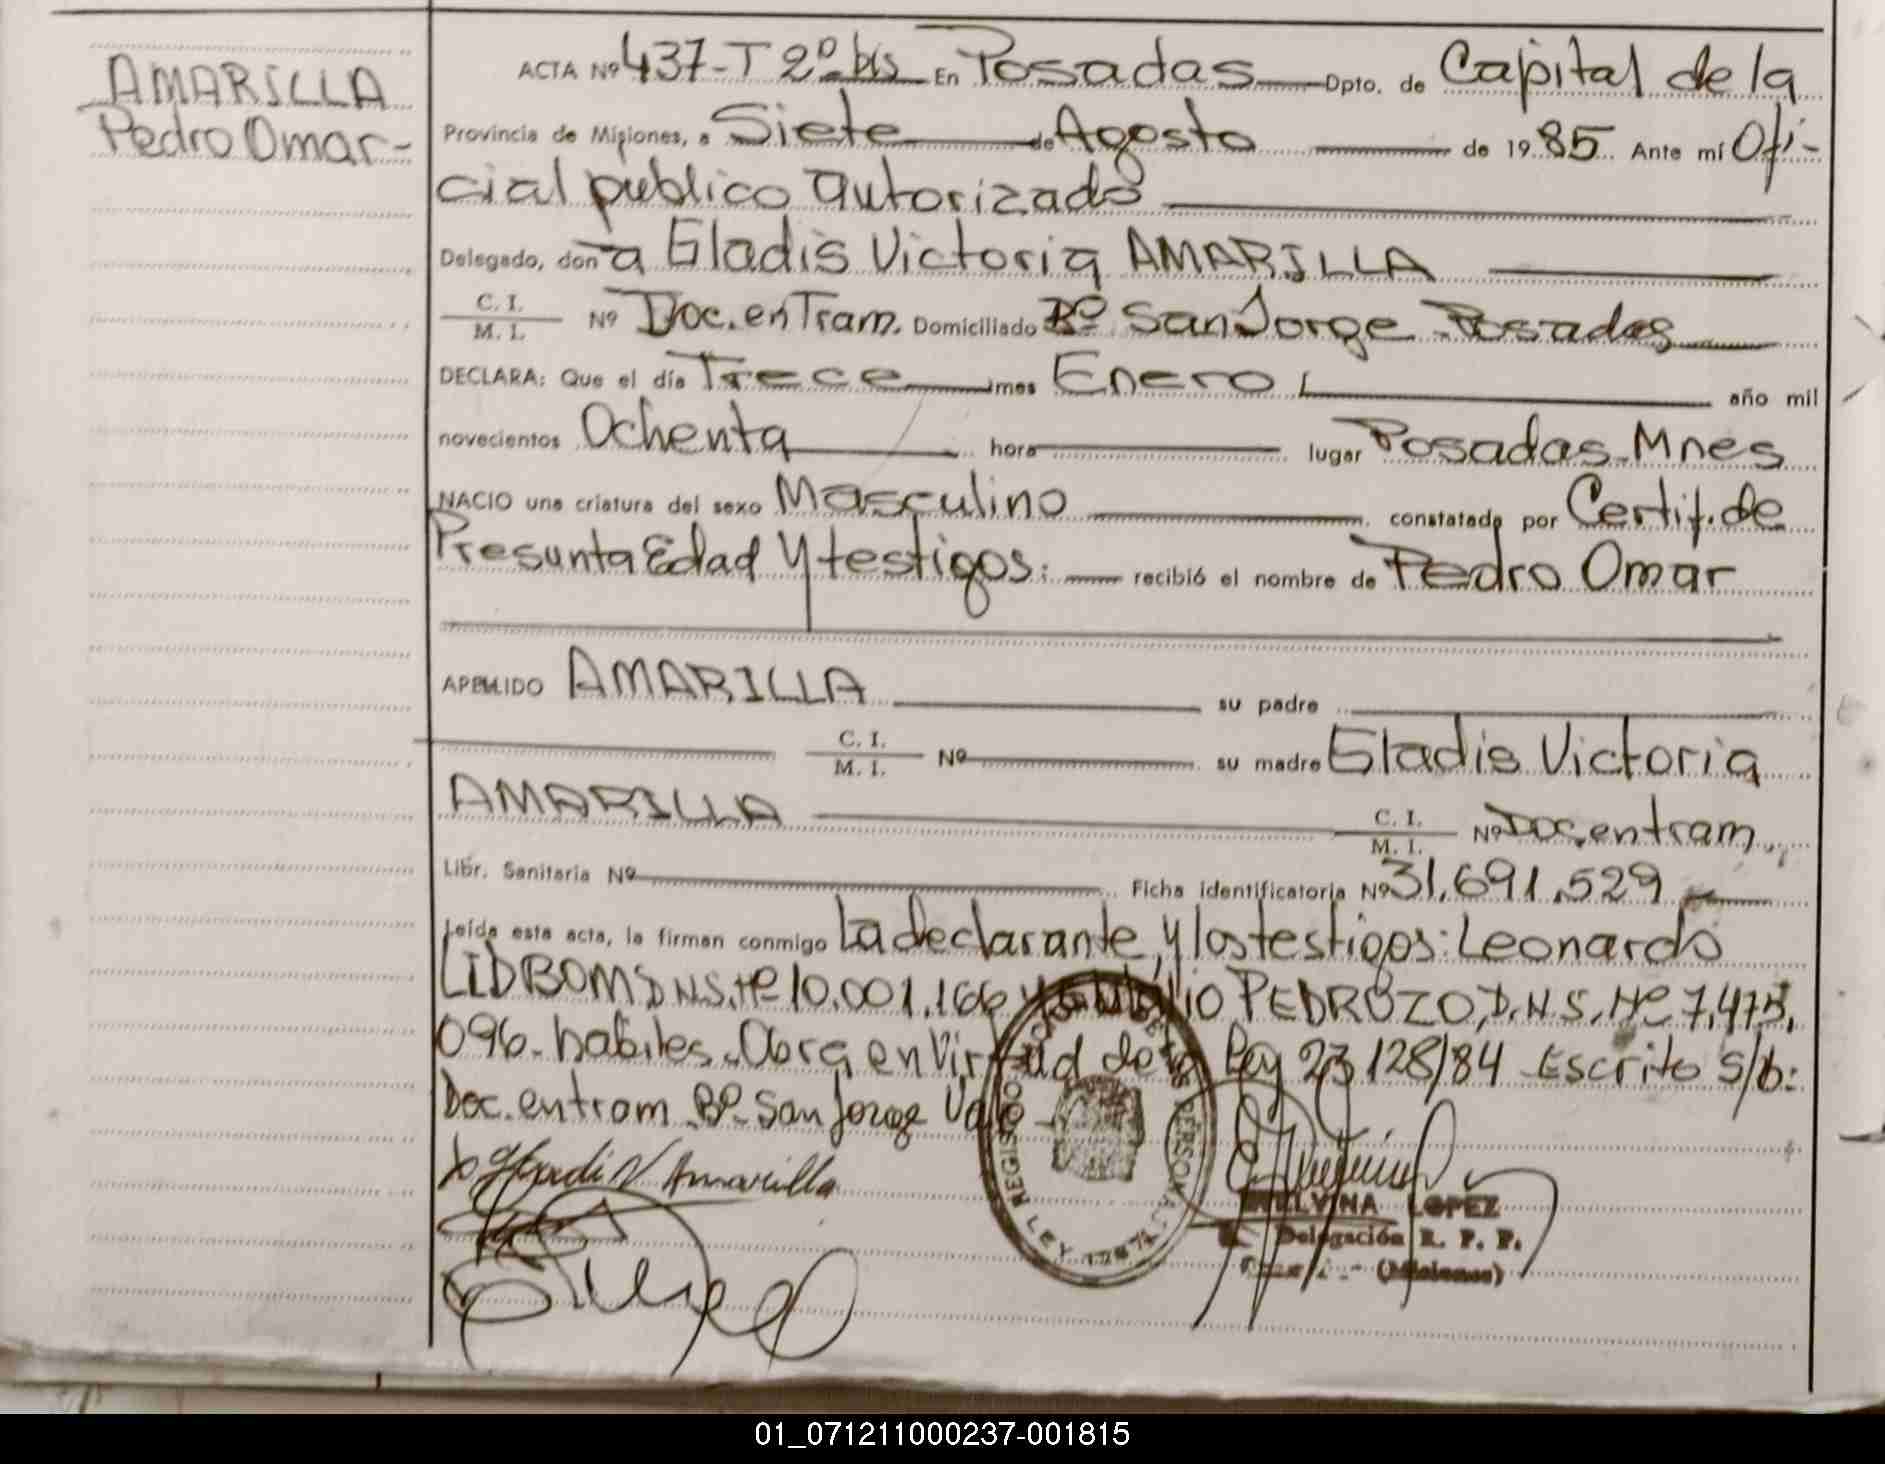 AMARILLA
Pedro Omar-
ACTA Nº 437-T 2º bis En Posadas Dpto. de Capital de la
Provincia de Misiones, a Siete de Agosto de 1985 Ante mí Ofi-
cial publico autorizado
Delegado, don a Gladis Victoria AMARILLA
C. I.
M. I. Nº Doc. en Tram. Domiciliado Bº San Jorge - Posadas
DECLARA: Que el día Trece mes Enero año mil
novecientos Ochenta hora lugar Posadas - Mnes
NACIO una criatura del sexo Masculino constatada por Certif. de
Presunta Edad y testigos: recibió el nombre de Pedro Omar
APELLIDO AMARILLA su padre
C. I.
M. I. Nº su madre Gladis Victoria
AMARILLA C. I.
M. I. Nº Doc. en tram.
Libr. Sanitaria Nº Ficha identificatoria Nº 31.691.529
Leída esta acta, la firman conmigo La declarante, y los testigos: Leonardo
LIDBOM D.N.S. Nº 10.001.166 y PEDROZO, D.N.S. Nº 7.475.
096 - habiles - Obra en Virtud de la Ley 23128/84 Escrito s/b:
Doc. en tram. Bº San Jorge Vale -
Gladi V Amarilla
REGISTRO
LEY
LOPEZ
Delegación R. P. P.
(Misiones)
01_071211000237-001815